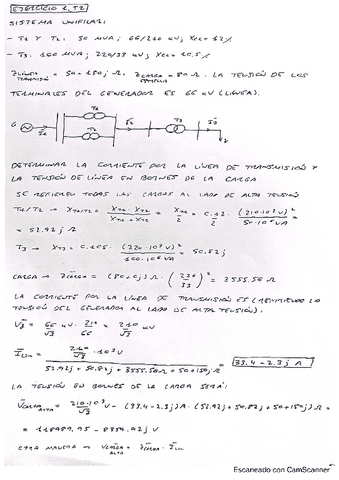 EJERCICIO 1, T2
SISTEMA UNIFILAR:
- T1 Y T2: 50 MVA; 66/210 kV, Xcc = 12%
- T3: 100 MVA; 220/33 kV; Xcc = 10.5%
LÍNEA TRANSMISIÓN = 50+150j Ω. CARGA = 80 Ω. LA TENSIÓN DE LOS
TERMINALES DEL GENERADOR ES 66 kV (LÍNEA).
G T1 T2 T3
DETERMINAR LA CORRIENTE POR LA LÍNEA DE TRANSMISIÓN Y
LA TENSIÓN DE LÍNEA EN BORNES DE LA CARGA
SE REFIEREN TODAS LAS CARGAS AL LADO DE ALTA TENSIÓN
T1/T2 → XT1/T2 = XT1 · XT2 / XT1 + XT2 = XT1 / 2 = 0.12 / 2 · (210·10³ V)² / 50·10⁶ VA =
= 52.92j Ω
T3 → XT3 = 0.105 · (220·10³ V)² / 100·10⁶ VA = 50.82j
CARGA → Z CARGA = (80+0j) Ω · (220/33)² = 3555.56 Ω
LA CORRIENTE POR LA LÍNEA DE TRANSMISIÓN ES (REFIRIENDO LA
TENSIÓN DEL GENERADOR AL LADO DE ALTA TENSIÓN).
VG = 66/√3 kV · 210/66 = 210/√3 kV
I LIN = 210/√3 · 10³ V / 52.92j + 50.82j + 3555.56 Ω + 50+150j Ω = 33.4 - 2.3j A
LA TENSIÓN EN BORNES DE LA CARGA SERÁ:
V CARGA ALTA = 210·10³/√3 V - (33.4-2.3j) A · (52.92j + 50.82j + 50+150j) Ω =
= 118989.95 - 8354.02j V
OTRA MANERA → V CARGA ALTA = Z CARGA · I LIN
Escaneado con CamScanner